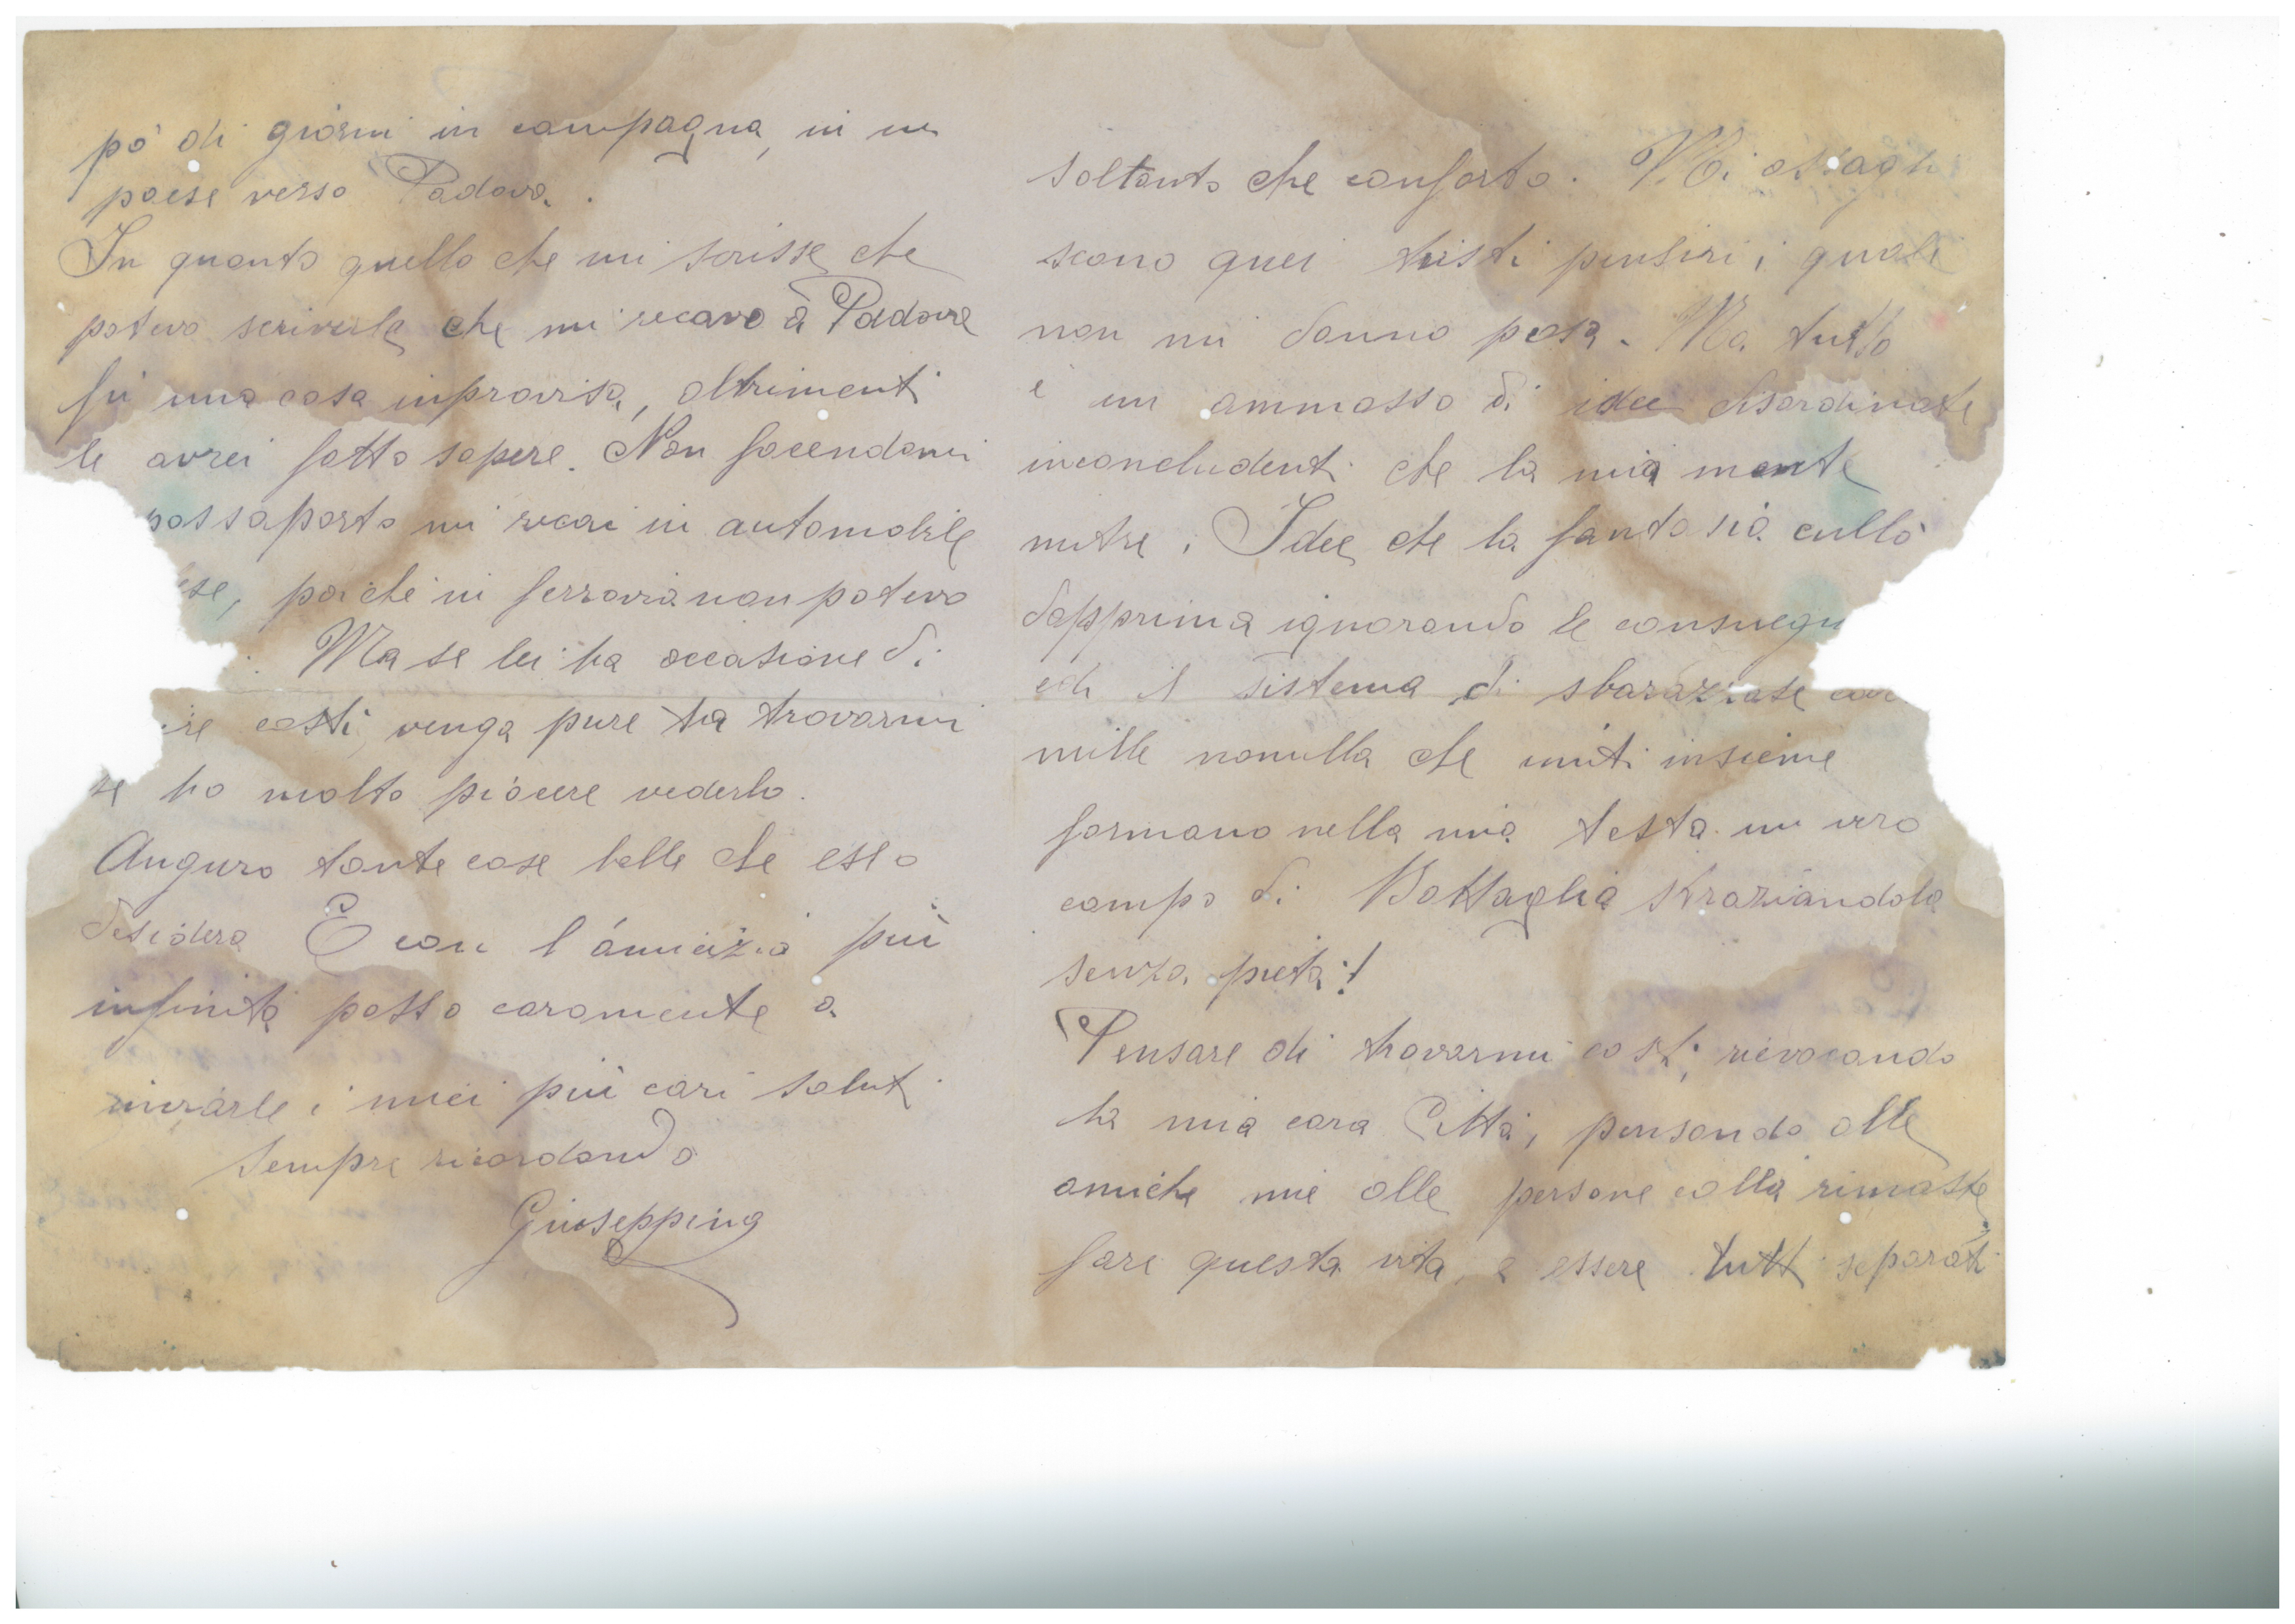 pò di giorni in campagna, in un
paese verso Padova.
In quanto quello che mi scrisse che
potevo scriverla che mi recavo a Padova
fu una cosa inprovisa, altrimenti
le avrei fatto sapere. Non facendomi
passaporto mi recai in automobile
poichè in ferrovia non potevo
Ma se lei ha occasione di
costì, venga pure ha trovarmi
se ho molto piacere vederlo.
Auguro tante cose belle che esso
desidera E con l'amicizia più
infinita posso caramente a
inviarle i miei più cari saluti
Sempre ricordando
Giuseppina
soltanto che conforto. Mi assagli
scono quei tristi pensieri i quali
non mi danno posa. Ma tutto
è un ammasso di idee disordinate
inconcludenti che la mia mente
nutre, Idee che la fantasia cullò
dapprima ignorando le consuegu
ed il sistema di sbarazzate
mille nonulla che uniti insieme
formano nella mia testa un vero
campo di Battaglia straziandola
senza pietà!
Pensare di trovarmi costì, rievocando
la mia cara Città, pensando alle
amiche mie alle persone collà rimaste
fare questa vita, e essere tutti separati